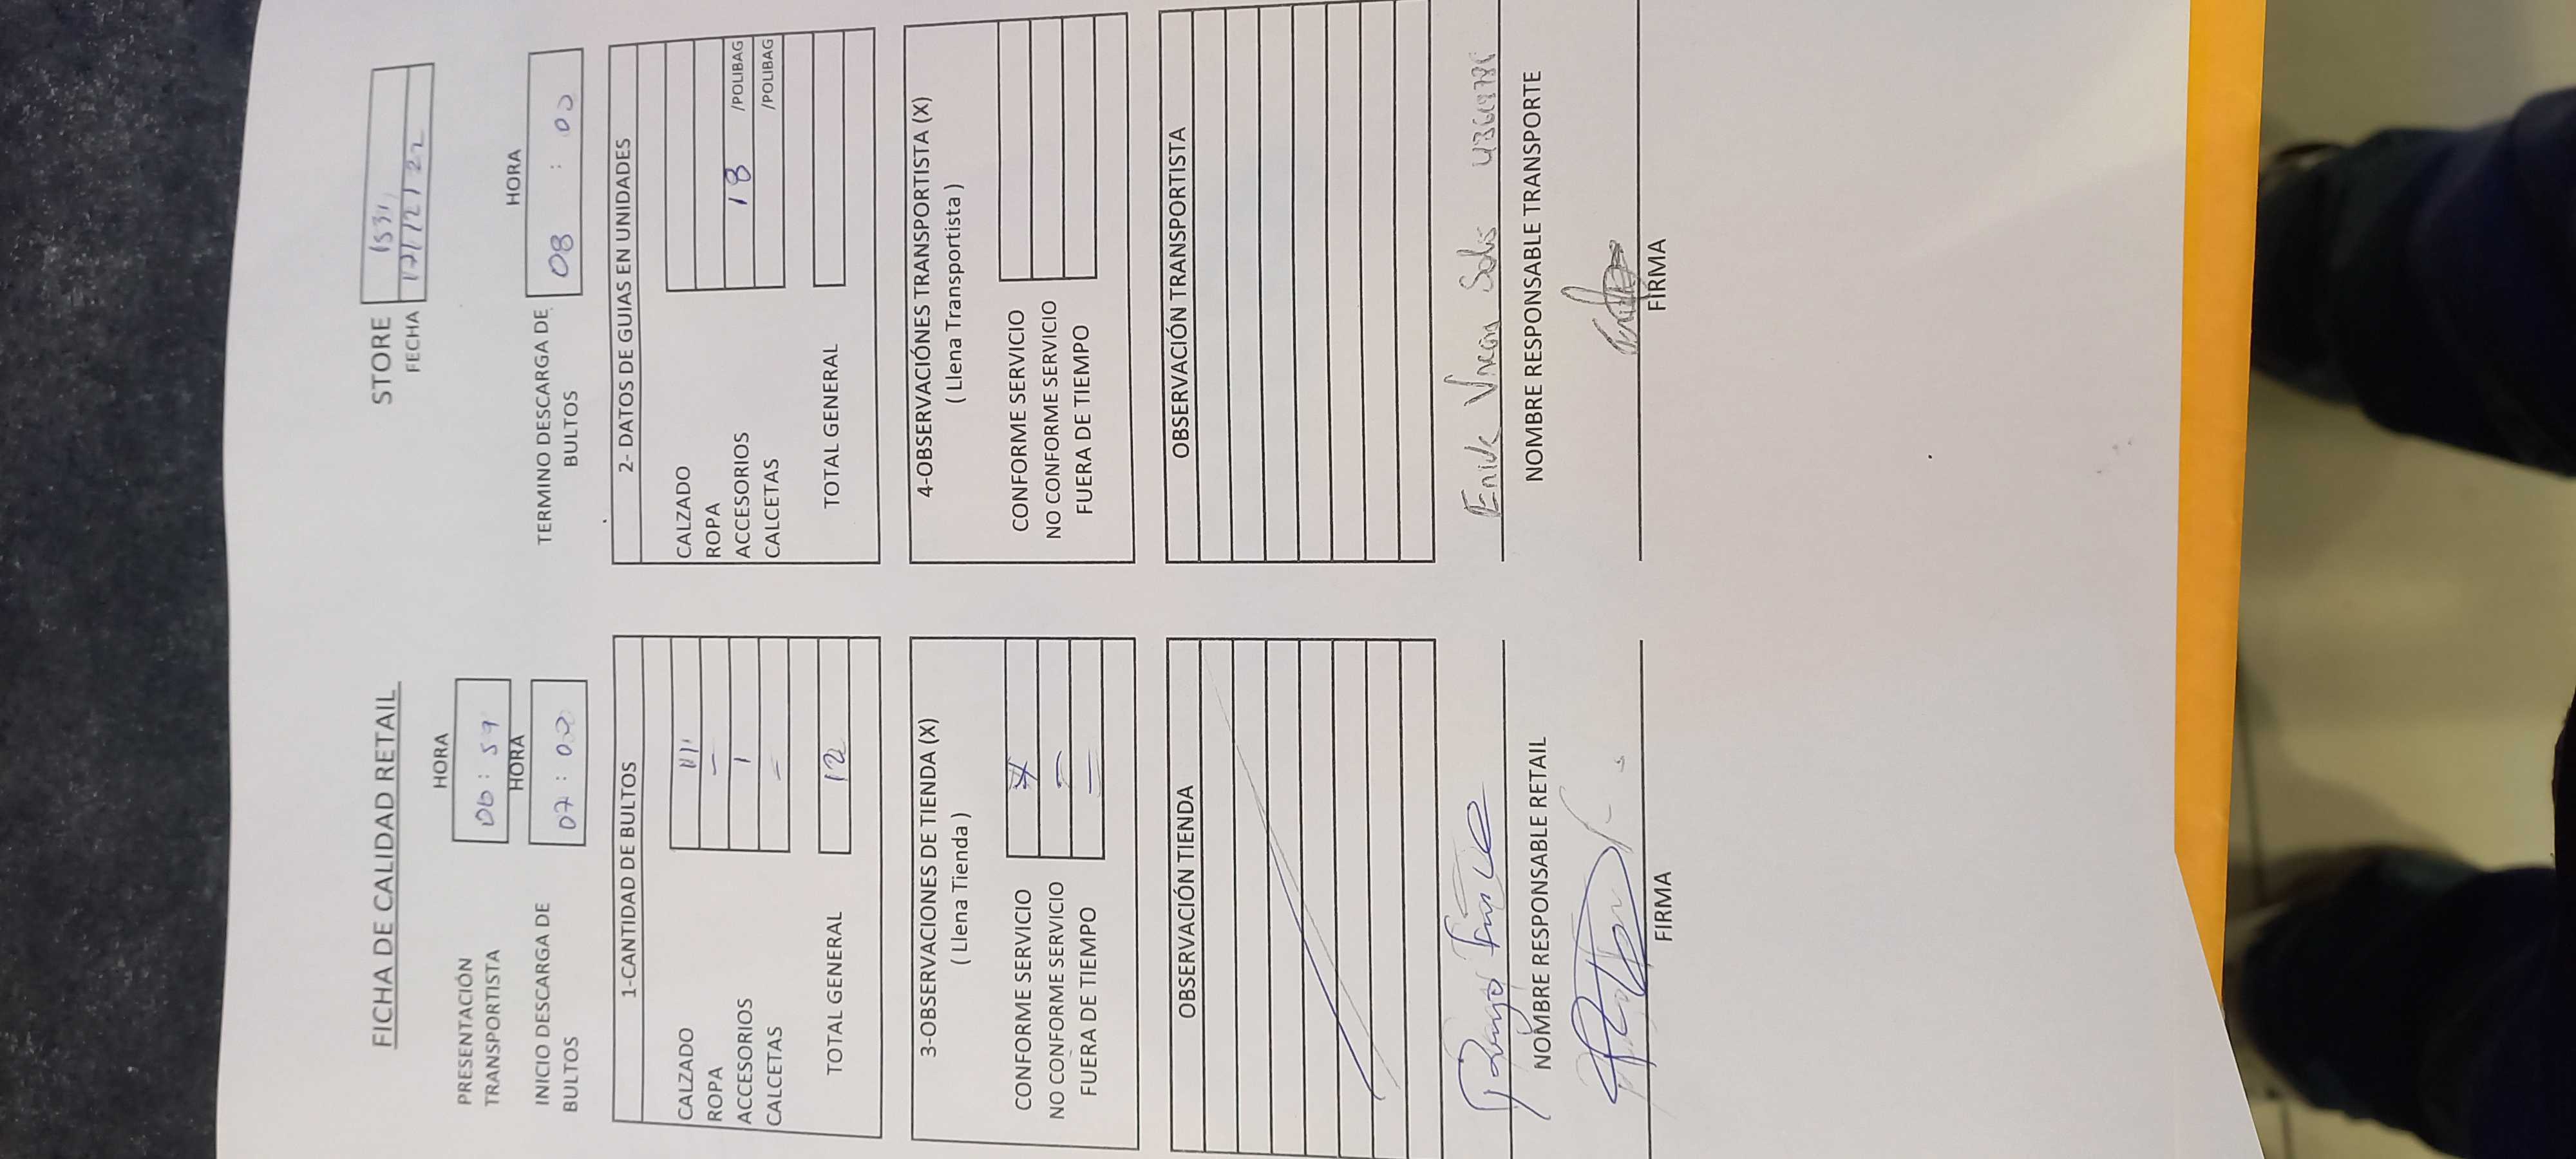 FICHA DE CALIDAD RETAIL
STORE 1531
FECHA 17/12/22
HORA
PRESENTACIÓN TRANSPORTISTA 06 : 59
HORA
INICIO DESCARGA DE BULTOS 07 : 00
HORA
TERMINO DESCARGA DE BULTOS 08 : 00
1-CANTIDAD DE BULTOS
CALZADO 11
ROPA -
ACCESORIOS 1
CALCETAS -
TOTAL GENERAL 12
2- DATOS DE GUIAS EN UNIDADES
CALZADO
ROPA
ACCESORIOS 18 /POLIBAG
CALCETAS /POLIBAG
TOTAL GENERAL
3-OBSERVACIONES DE TIENDA (X)
( Llena Tienda )
CONFORME SERVICIO X
NO CONFORME SERVICIO -
FUERA DE TIEMPO -
4-OBSERVACIÓNES TRANSPORTISTA (X)
( Llena Transportista )
CONFORME SERVICIO
NO CONFORME SERVICIO
FUERA DE TIEMPO
OBSERVACIÓN TIENDA
OBSERVACIÓN TRANSPORTISTA
NOMBRE RESPONSABLE RETAIL
FIRMA
Solis
NOMBRE RESPONSABLE TRANSPORTE
FIRMA